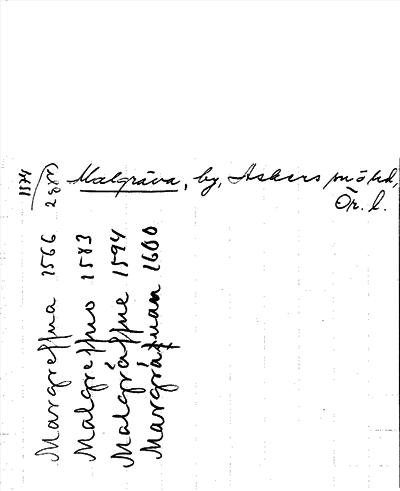 Malgräva, by, Askers snöhd,
Ör. l.
1574
Margreffua 1566
Malgreffuo 1583
Malgräffue 1594
Margräffuan 1600